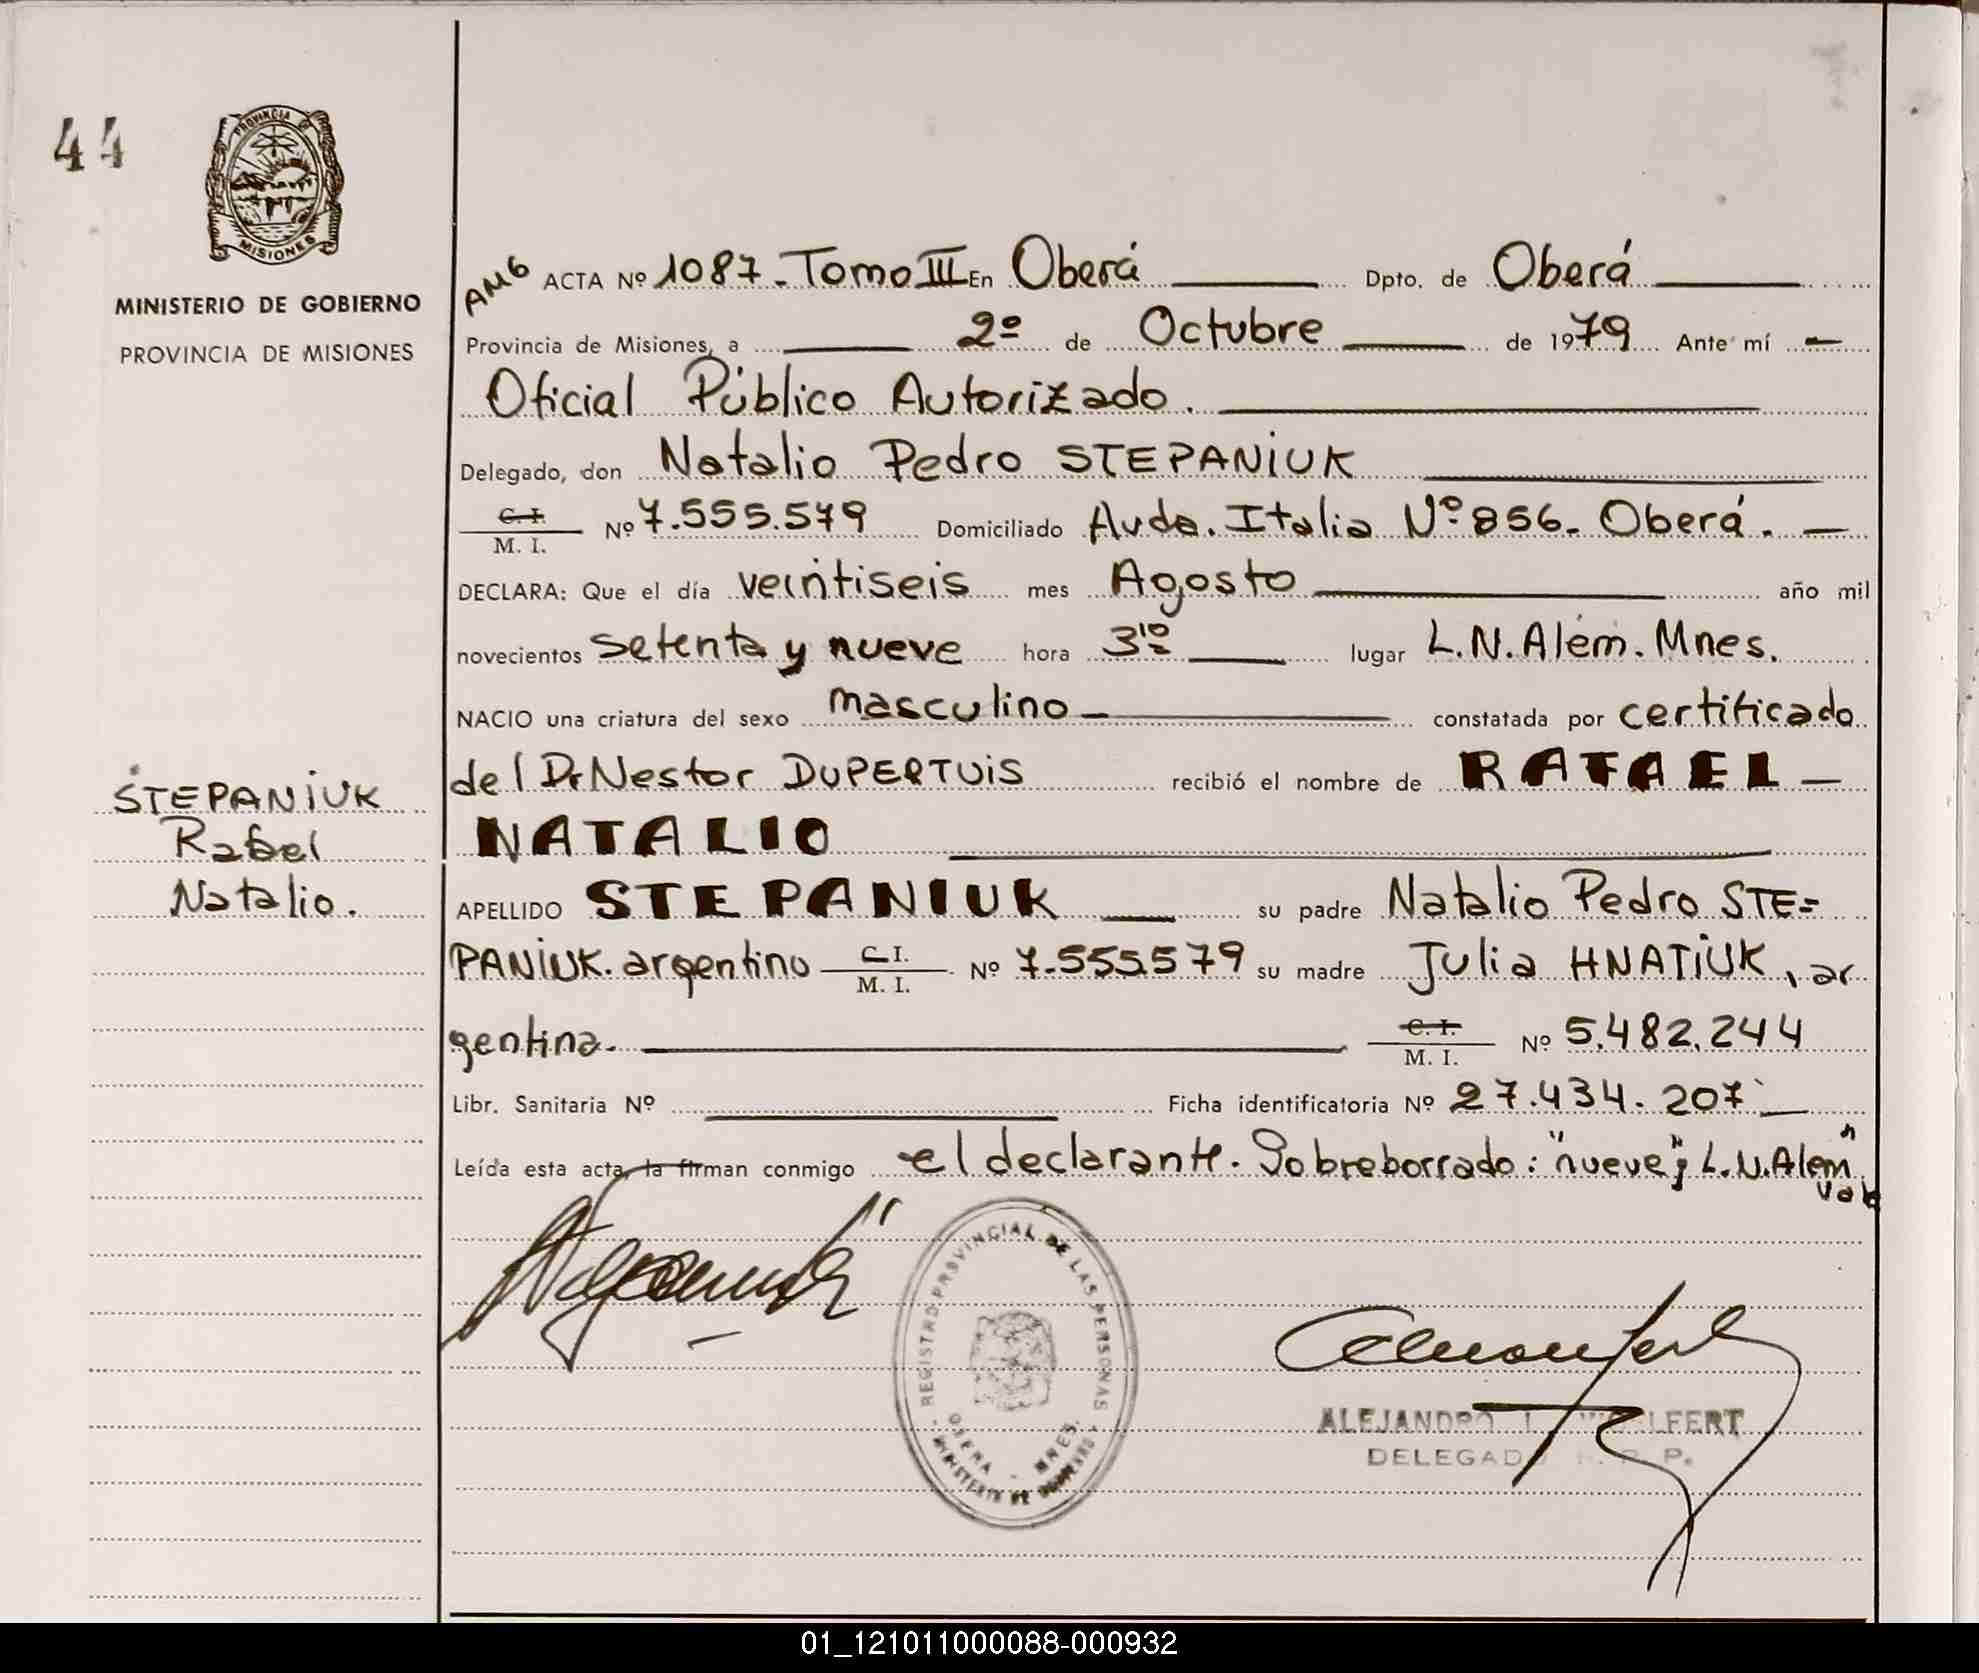 44
PROVINCIA
MISIONES
MINISTERIO DE GOBIERNO
PROVINCIA DE MISIONES
STEPANIUK
Rafael
Natalio.
AMG ACTA Nº 1087-Tomo III En Oberá Dpto. de Oberá
Provincia de Misiones, a 2º de Octubre de 1979 Ante mí
Oficial Público Autorizado.
Delegado, don Natalio Pedro STEPANIUK
C. I.
M. I. Nº 7.555.579 Domiciliado Avda. Italia Nº 856- Oberá.
DECLARA: Que el día veintiseis mes Agosto año mil
novecientos setenta y nueve hora 3¹⁰ lugar L.N.Alem. Mnes.
NACIO una criatura del sexo masculino constatada por certificado
del Dr Nestor DUPERTUIS recibió el nombre de RAFAEL
NATALIO
APELLIDO STEPANIUK su padre Natalio Pedro STE=
PANIUK. argentino C. I.
M. I. Nº 7.555579 su madre Julia HNATIUK, ar
gentina. C. I.
M. I. Nº 5.482.244
Libr. Sanitaria Nº Ficha identificatoria Nº 27.434.207
Leída esta acta, la firman conmigo el declarante. Sobreborrado: "nueve"; L.N.Alem"
vale
REGISTRO PROVINCIAL DE LAS PERSONAS
OBERA - MNES.
MINISTERIO DE GOBIERNO
ALEJANDRO
DELEGADO
01_121011000088-000932